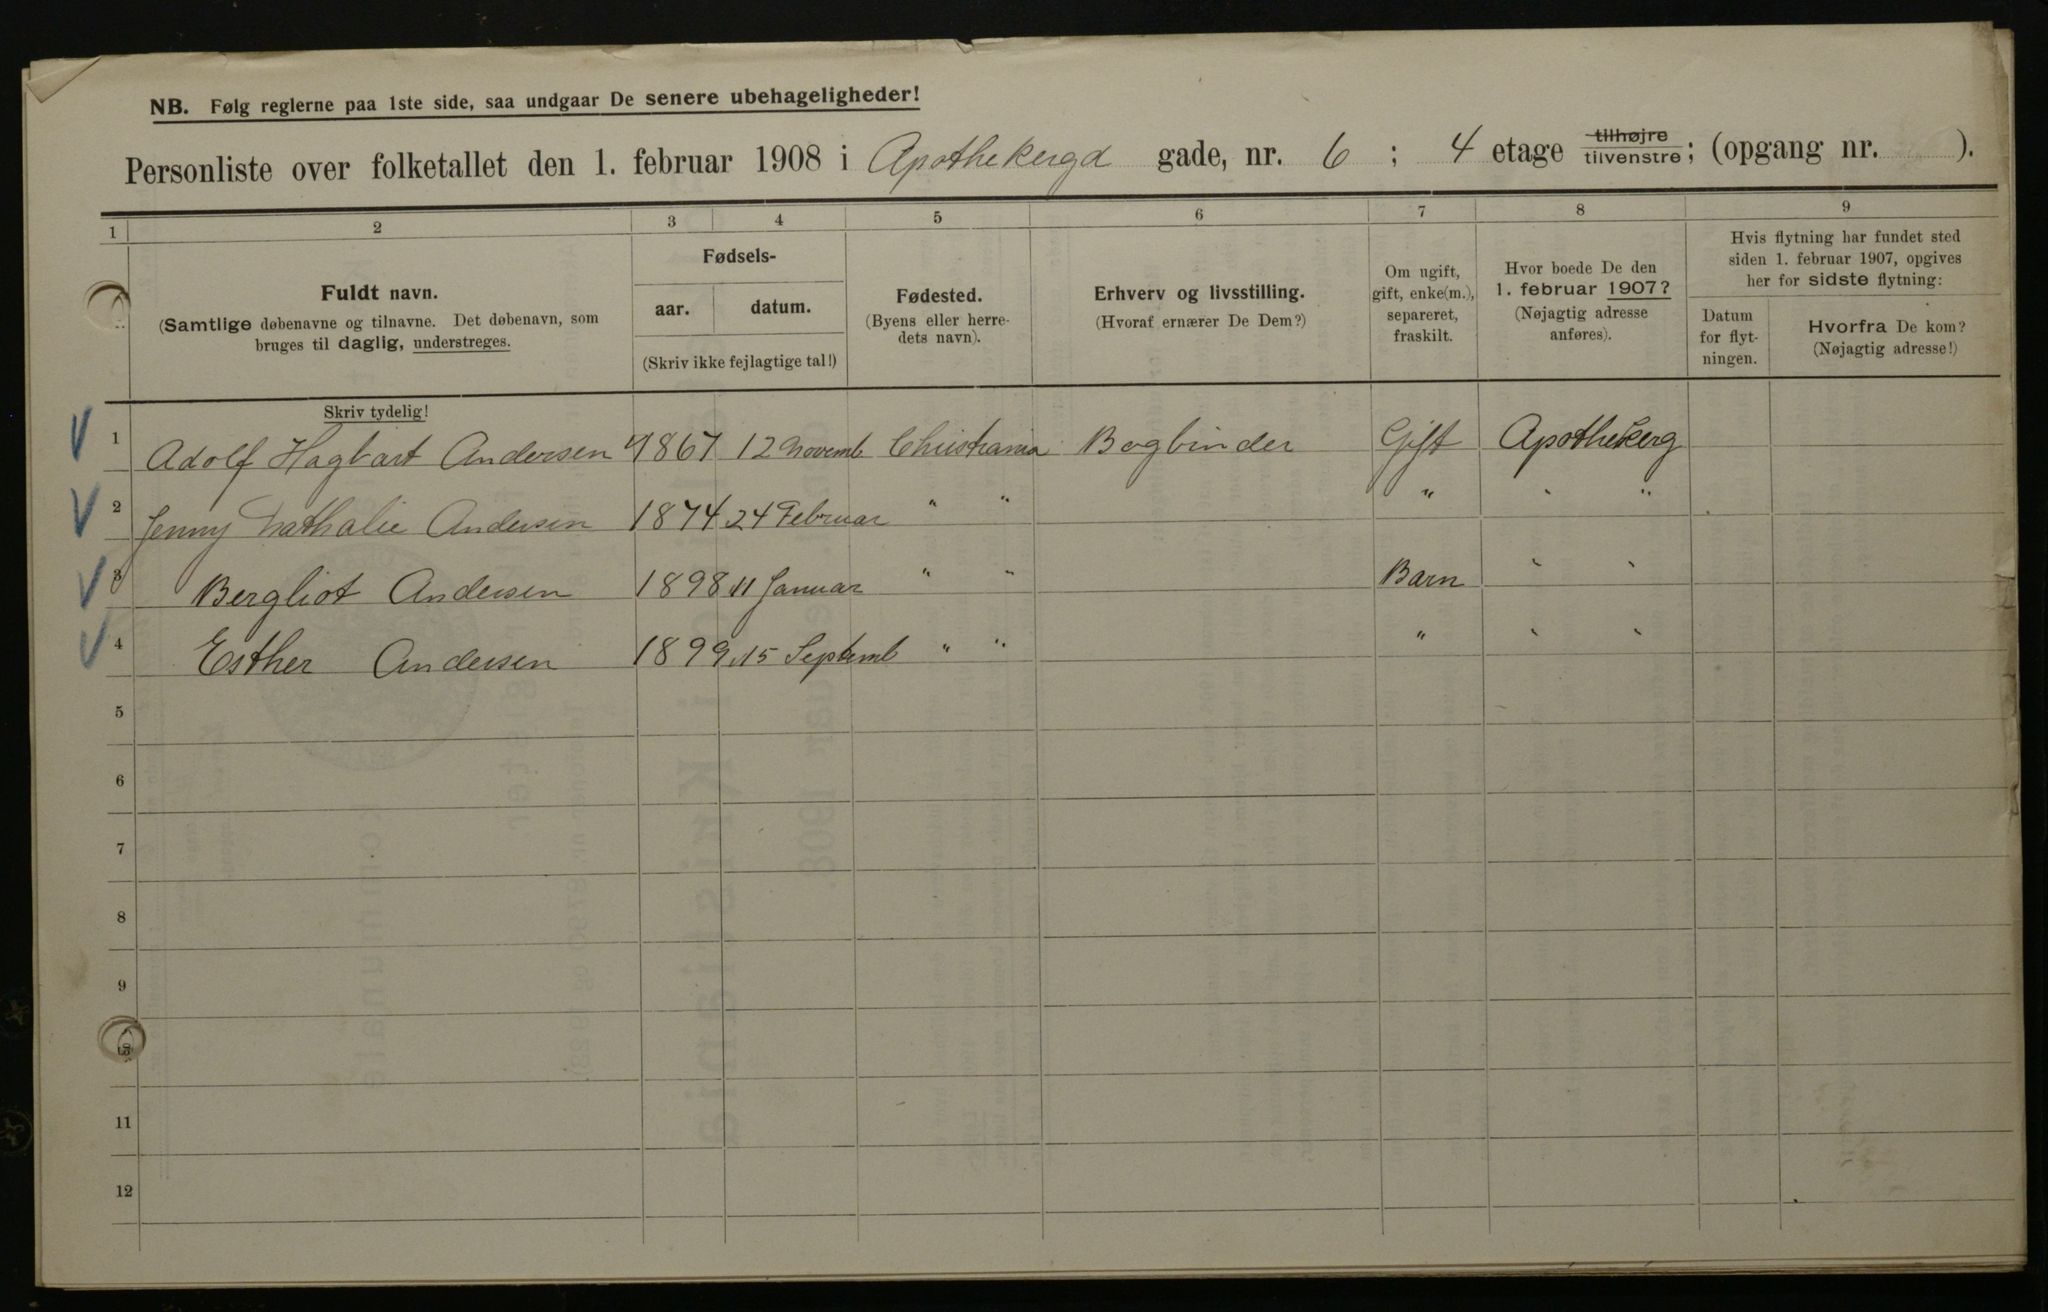 NB. Følg reglerne paa 1ste side, saa undgaar De senere ubehageligheder!
Personliste over folketallet den 1. februar 1908 i Apothekergd gade, nr. 6 ; 4 etage tilhøjre tilvenstre; (opgang nr. ).
1 2 3 4 5 6 7 8 9
Fuldt navn.
(Samtlige døbenavne og tilnavne. Det døbenavn, som
bruges til daglig, understreges.
Skriv tydelig!
Fødsels-
aar. datum.
(Skriv ikke fejlagtige tal!)
Fødested.
(Byens eller herre-
dets navn).
Erhverv og livsstilling.
(Hvoraf ernærer De Dem?)
Om ugift,
gift, enke(m.),
separeret,
fraskilt.
Hvor boede De den
1. februar 1907?
(Nøjagtig adresse
anføres).
Hvis flytning har fundet sted
siden 1. februar 1907, opgives
her for sidste flytning:
Datum
for flyt-
ningen.
Hvorfra De kom?
(Nøjagtig adresse!)
1 Adolf Hagbart Andersen 1867 12 Novemb Christiania Bogbinder Gift Apothekerg
2 Jenny Nathalie Andersen 1874 24 Februar " " " " "
3 Bergliot Andersen 1898 11 Januar " " Barn " "
4 Esther Andersen 1899 15 Septemb " " " " "
5
6
7
8
9
11
12